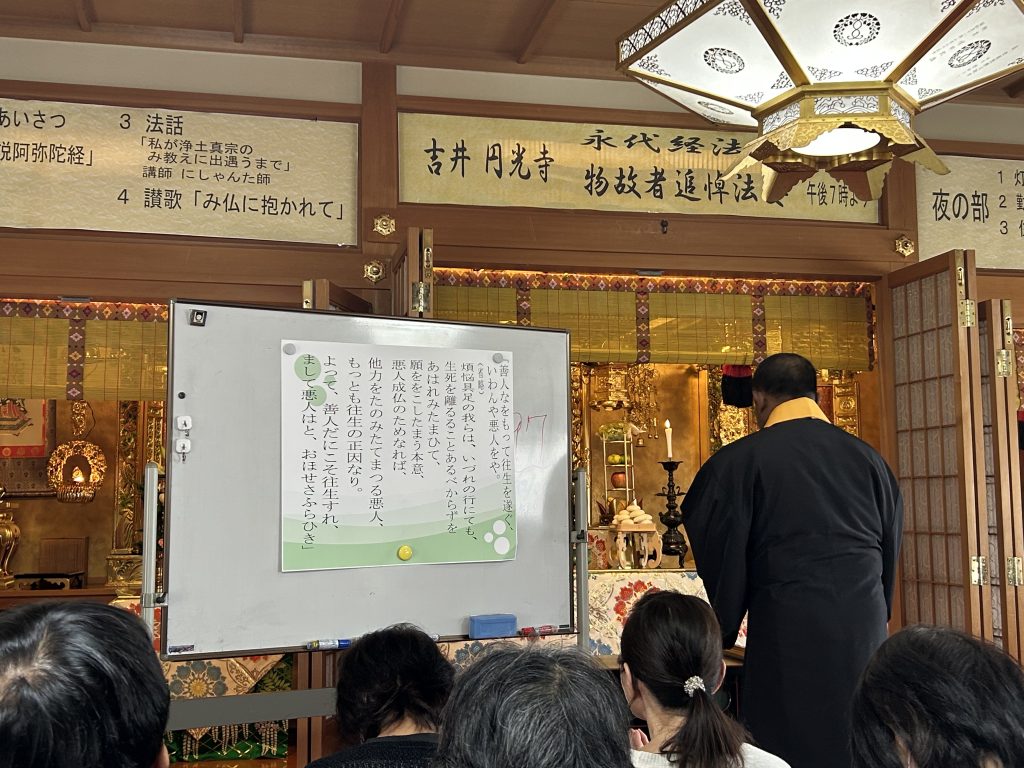 あいさつ
説阿弥陀経」
3 法話
「私が浄土真宗の
み教えに出遇うまで」
講師 にしゃんた師
4 讃歌「み仏に抱かれて」
吉井 円光寺
永代経法
物故者追悼法
午後7時より
夜の部
1
2
3
「善人なをもって往生を遂ぐ、
いわんや悪人をや。
(省略)
煩悩具足の我らは、いづれの行にても、
生死を離るることあるべからずを
あはれみたまひて、
願ををこしたまう本意、
悪人成仏のためなれば、
他力をたのみたてまつる悪人、
もっとも往生の正因なり。
よって、善人だにこそ往生すれ、
まして悪人はと、おほせさふらひき」